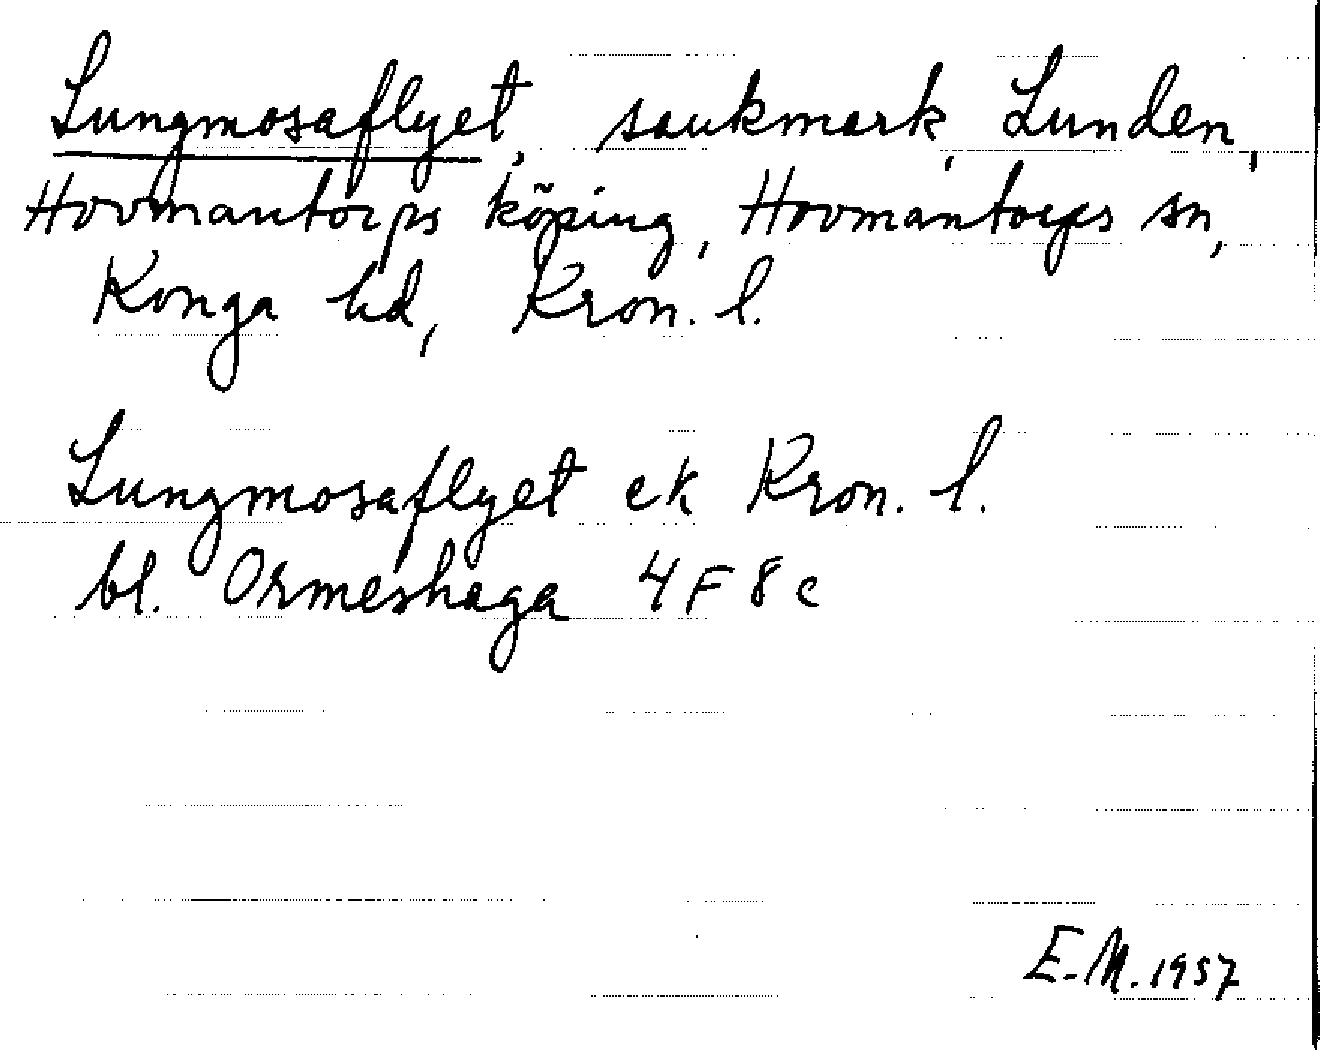 Lungmosaflyet, sankmark, Lunden,
Hovmantorps köping, Hovmantorps sn,
Konga hd, Kron. l.
Lungmosaflyet ek Kron. l.
bl. Ormeshaga 4 F 8 c
E.M. 1957